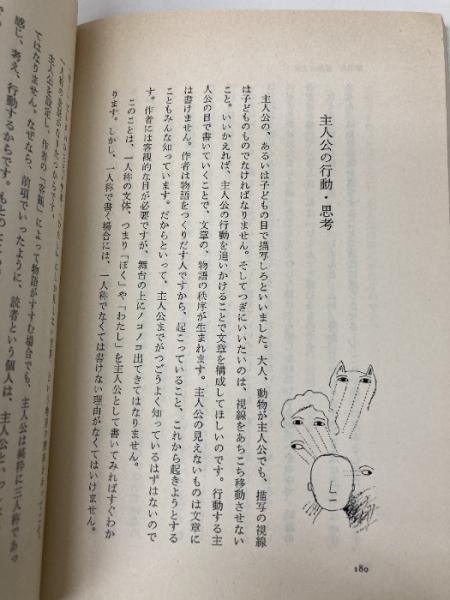 主人公の行動・思考
主人公の、あるいは子どもの目で描写しろといいました。大人、動物が主人公でも、描写の視線
は子どものものでなければなりません。そしてつぎにいいたいのは、視線をあちこち移動させない
こと。いいかえれば、主人公の行動を追いかけることで文章を構成してほしいのです。行動する主
人公の目で書いていくことで、文章の、物語の秩序が生まれます。主人公の見えないものは文章に
は書けません。作者は物語をつくりだす人ですから、起こっていること、これから起きようとする
こともみんな知っています。だからといって、主人公までがつごうよく知っているはずはないので
す。作者には客観的な目が必要ですが、舞台の上にノコノコ出てきてはなりません。
このことは、一人称の文体、つまり「ぼく」や「わたし」を主人公として書いてみればすぐわか
ります。しかし、一人称で書く場合には、一人称でなくては書けない理由がなくてはいけません。
180
主人公を設定し、作者の「客観」によって物語がすすむ場合でも、主人公は純粋に三人称であっ
てはなりません。なぜなら、前項でいったように、読者という個人は、主人公と
感じ、考え、行動するからです。